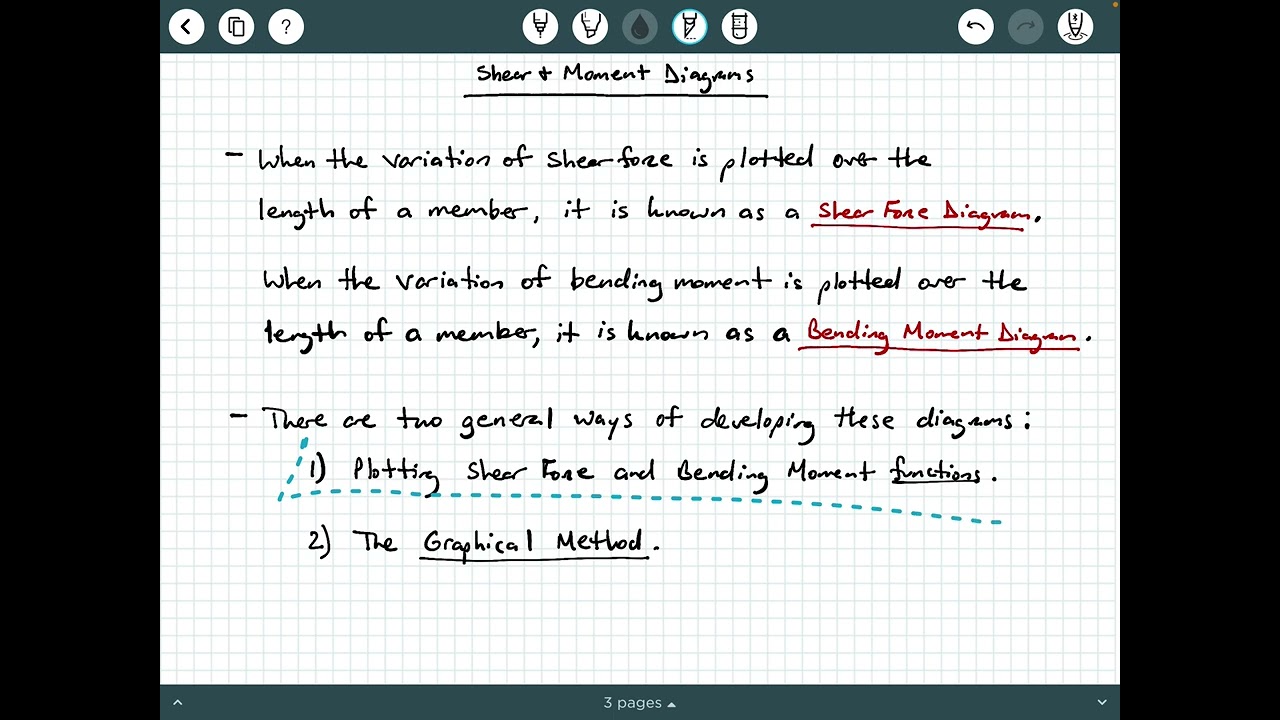 ?
Shear + Moment Diagrams
- When the variation of shear force is plotted over the
length of a member, it is known as a Shear Force Diagram.
When the variation of bending moment is plotted over the
length of a member, it is known as a Bending Moment Diagram.
- There are two general ways of developing these diagrams:
1) Plotting Shear Force and Bending Moment functions.
2) The Graphical Method.
3 pages